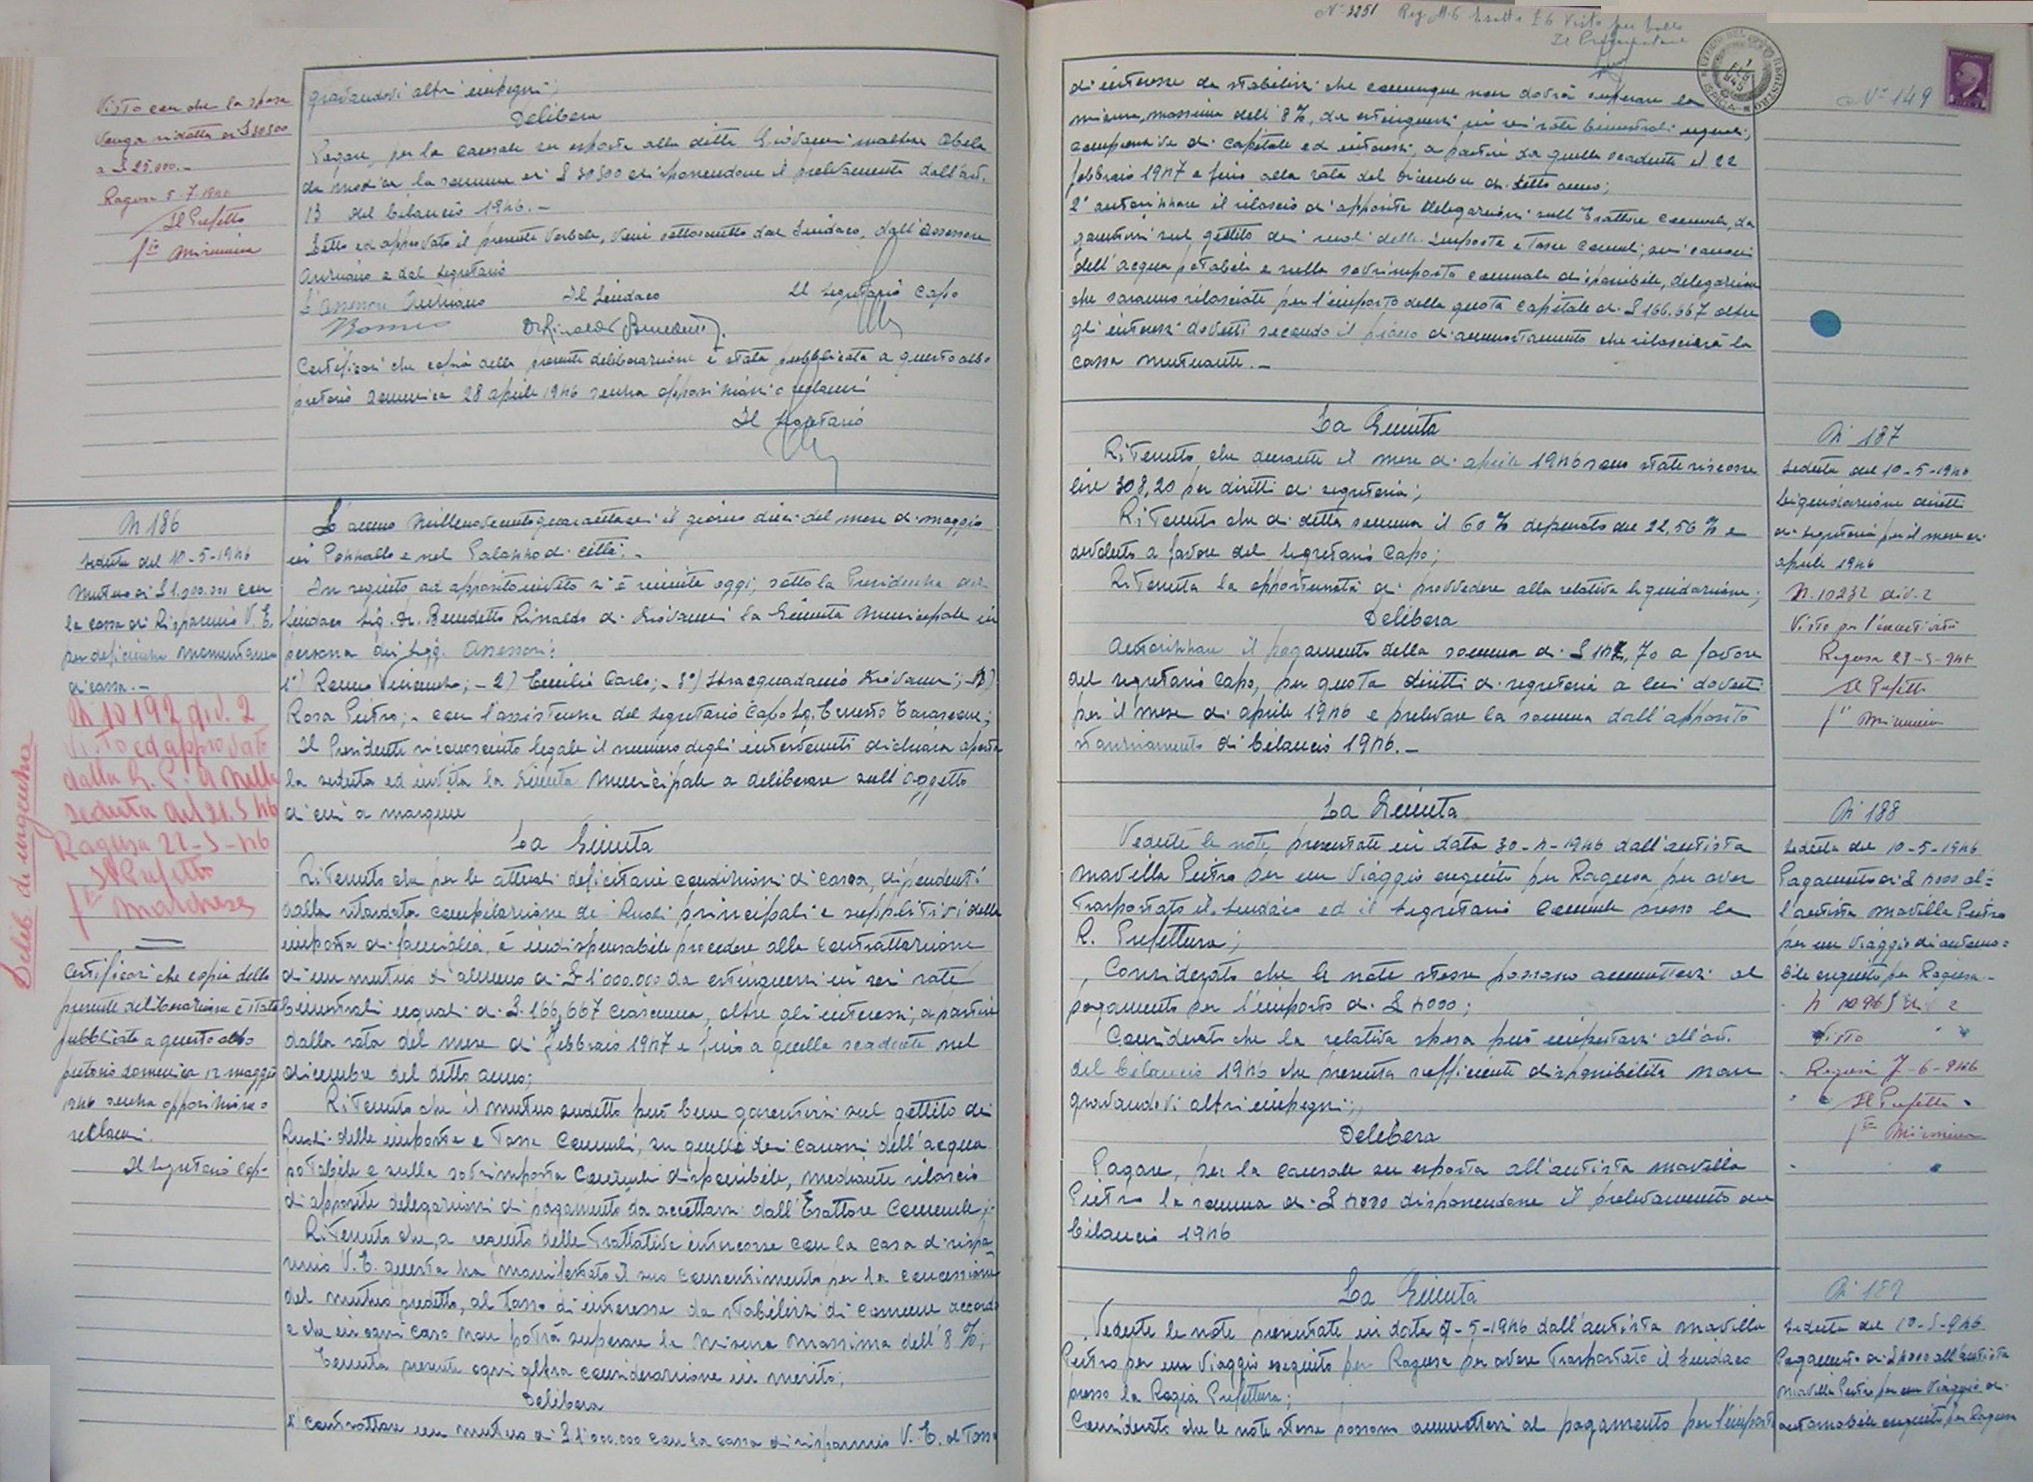 Visto con che la spesa
venga ridotta di £ 30500
a £ 25.000.-
Ragusa 5-7-1946
Il Prefetto
gravandovi altri impegni;
Delibera
Pagare, per la causale su esposta alla ditta Giovanni
da Modica la somma di £ 30500 disponendone il prelevamento dall'art.
13 del bilancio 1946.-
Letto ed approvato il presente verbale, viene sottoscritto dal Sindaco, dall'Assessore
Anziano e dal Segretario
L'Assessore Anziano Il Sindaco Il Segretario Capo
Romeo Dr Rinaldo Benedetto
Certificasi che copia della presente deliberazione è stata pubblicata a questo albo
pretorio domenica 28 aprile 1946 senza opposizioni o reclami
Il Segretario
N 186
Seduta del 10-5-1946
Mutuo di £ 1.000.000 con
la cassa di Risparmio V. E.
per deficienza momentanea
di cassa.-
N 10192 div. 2
Visto ed approvato
dalla G. P. A. nella
seduta del 21.5.46
Ragusa 22-5-46
Il Prefetto
Delib di urgenza
Certificasi che copia della
presente deliberazione è stata
pubblicata a questo albo
pretorio domenica 12 maggio
1946 senza opposizioni o
reclami.
Il Segretario Cap.
L'anno Millenovecentoquarantasei il giorno dieci del mese di maggio
in Pozzallo e nel Palazzo di città.-
In seguito ad apposito invito si è riunita oggi, sotto la Presidenza del
Sindaco Sig. Dr. Benedetto Rinaldo di Giovanni la Giunta Municipale in
persona dei Sigg. Assessori:
1°) Romeo Vincenzo; - 2) Carlo; - 3°) Stracquadanio Giovanni; - 4)
Rosa Pietro; - con l'assistenza del Segretario Capo Sig. Ernesto
Il Presidente riconosciuto legale il numero degli intervenuti dichiara aperta
la seduta ed invita la Giunta Municipale a deliberare sull'oggetto
di cui a margine
La Giunta
Ritenuto che per le attuali deficitarie condizioni di cassa, dipendenti
dalla ritardata compilazione dei Ruoli principali e suppletivi della
imposta di famiglia, è indispensabile procedere alla contrattazione
di un mutuo di almeno di £ 1.000.000 da estinguersi in sei rate
bimestrali uguali di £. 166,667 ciascuna, oltre gli interessi; a partire
dalla rata del mese di febbraio 1947 e fino a quella scadente nel
dicembre del detto anno;
Ritenuto che il mutuo sudetto può bene garentirsi sul gettito dei
Ruoli delle imposte e Tasse Comunali, su quello dei canoni dell'acqua
potabile e sulla sovrimposta Comunale disponibile, mediante rilascio
di apposite delegazioni di pagamento da accettarsi dall'Esattore Comunale;
Ritenuto che, a seguito delle trattative intercorse con la cassa di rispar-
mio V. E. questa ha manifestato il suo consentimento per la concessione
del mutuo predetto, al tasso di interesse da stabilirsi di comune accordo
e che in ogni caso non potrà superare la misura massima dell'8%;
Tenuta presente ogni altra considerazione in merito;
Delibera
1° contrattare un mutuo di £ 1.000.000 con la cassa di risparmio V. E. al tasso
N° 2251 Visto per bollo
N° 149
di interesse da stabilirsi che comunque non dovrà superare la
misura massima dell'8%, da estinguersi in sei rate bimestrali uguali,
comprensive di capitale ed interessi, a partire da quella scadente il 22
febbraio 1947 e fino alla rata del dicembre di detto anno;
2° autorizzare il rilascio di apposite delegazioni sull'Esattore Comunale, da
garentirsi sul gettito dei ruoli delle Imposte e Tasse Comunali, sui canoni
dell'acqua potabile e sulla sovrimposta comunale disponibile, delegazioni
che saranno rilasciate per l'importo della quota capitale di £ 166.667 oltre
gli interessi dovuti secondo il piano di ammortamento che rilascierà la
cassa mutuante.-
La Giunta
Ritenuto che durante il mese di aprile 1946 sono state riscosse
lire 308,20 per diritti di segreteria;
Ritenuto che di detta somma il 60% depurato del 22,50% è
devoluto a favore del Segretario Capo;
Ritenuta la opportunità di provvedere alla relativa liquidazione;
Delibera
Autorizzare il pagamento della somma di £ 142,70 a favore
del segretario Capo, per quota diritti di segreteria a lui dovuti
per il mese di aprile 1946 e prelevare la somma dall'apposito
stanziamento di bilancio 1946.-
N 187
Seduta del 10-5-1946
Liquidazione diritti
di segreteria per il mese di
aprile 1946
N. 10232 div. 2
Visto per l'esecutività
Ragusa 23-5-946
Il Prefetto
La Giunta
Vedute le note presentate in data 30-4-1946 dall'autista
Mavilla Pietro per un viaggio eseguito per Ragusa per aver
trasportato il Sindaco ed il Segretario Comunale presso la
R. Prefettura;
Considerato che le note stesse possono ammettersi al
pagamento per l'importo di £ 4000;
Considerato che la relativa spesa può imputarsi all'art.
del bilancio 1946 che presenta sufficiente disponibilità non
gravandovi altri impegni;
Delibera
Pagare, per la causale su esposta all'autista Mavilla
Pietro la somma di £ 4000 disponendone il prelevamento sul
bilancio 1946
N 188
Seduta del 10-5-1946
Pagamento di £ 4000 al-
l'autista Mavilla Pietro
per un viaggio di automo-
bile eseguito per Ragusa.-
Visto
Ragusa 7-6-946
Il Prefetto
La Giunta
Vedute le note presentate in data 9-5-1946 dall'autista Mavilla
Pietro per un viaggio eseguito per Ragusa per avere trasportato il Sindaco
presso la Regia Prefettura;
Considerato che le note stesse possono ammettersi al pagamento per l'importo
N 189
Seduta del 10-5-946
Pagamento di £ 4000 all'autista
Mavilla Pietro per un viaggio di
automobile eseguito per Ragusa